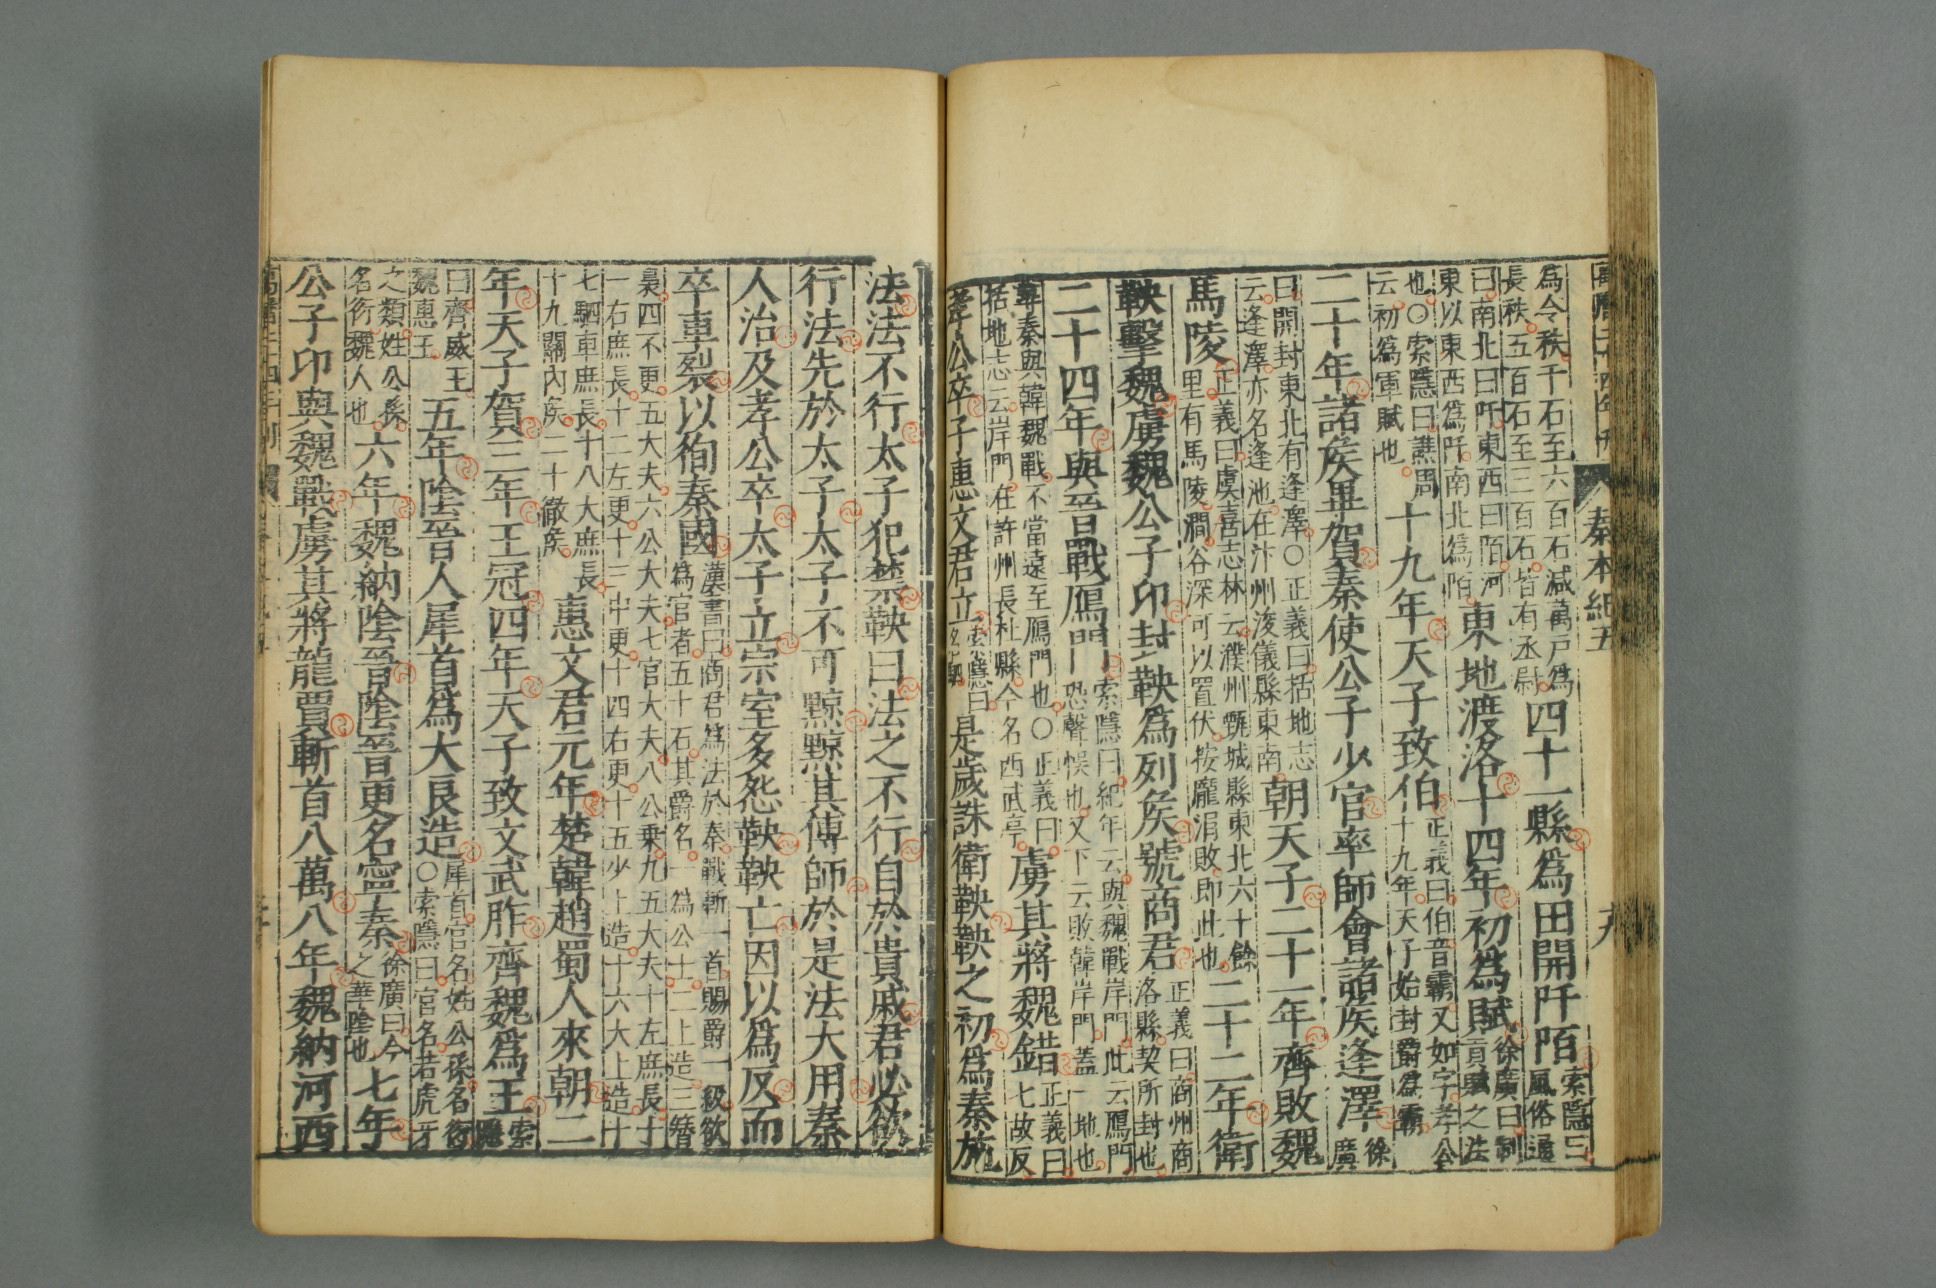 萬曆二十四年刊 秦本紀五 十九
為令秩千石至六百石減萬戶為長秩五百石至三百石皆有丞尉四十一縣爲田開阡陌索隱曰風俗通
曰南北曰阡東西曰陌河東以東西爲阡南北爲陌東地渡洛十四年初爲賦徐廣曰制貢賦之法
也○索隱曰譙周云初爲軍賦也十九年天子致伯正義曰伯音霸又如字孝公十九年天子始封爵爲霸
二十年諸矦畢賀秦使公子少官率師會諸矦逢澤徐廣
曰開封東北有逢澤○正義曰括地志云逢澤亦名逢池在汴州浚儀縣東南朝天子二十一年齊敗魏
馬陵正義曰虞喜志林云濮州甄城縣東北六十餘里有馬陵澗谷深可以置伏按龐涓敗即此也二十二年衛
鞅擊魏虜魏公子卬封鞅爲列矦號商君正義曰商州商洛縣契所封也
二十四年與晉戰鴈門索隱曰紀年云與魏戰岸門此云鴈門恐聲悞也又下云敗韓岸門蓋一地也
尋秦與韓魏戰不當遠至鴈門也○正義曰括地志云岸門在許州長社縣今名西武亭虜其將魏錯正義曰七故反
孝公卒子惠文君立索隱曰名駟是歲誅衛鞅鞅之初爲秦施
法法不行太子犯禁鞅曰法之不行自於貴戚君必欲
行法先於太子太子不可黥黥其傅師於是法大用秦
人治及孝公卒太子立宗室多怨鞅鞅亡因以爲反而
卒車裂以徇秦國漢書曰商君爲法於秦戰斬一首賜爵一級欲為官者五十石其爵名一爲公士二上造三簪
裊四不更五大夫六公大夫七官大夫八公乗九五大夫十左庶長十一右庶長十二左更十三中更十四右更十五少上造十六大上造十
七駟車庶長十八大庶長十九關內矦二十徹矦惠文君元年楚韓趙蜀人來朝二
年天子賀三年王冠四年天子致文武胙齊魏爲王索隱
曰齊威王魏惠王五年陰晉人犀首爲大良造○犀首官名姓公孫名衍索隱曰官名若虎牙
之類姓公孫名衍魏人也六年魏納陰晉陰晉更名寧秦徐廣曰今之華陰也七年
公子卬與魏戰虜其將龍賈斬首八萬八年魏納河西